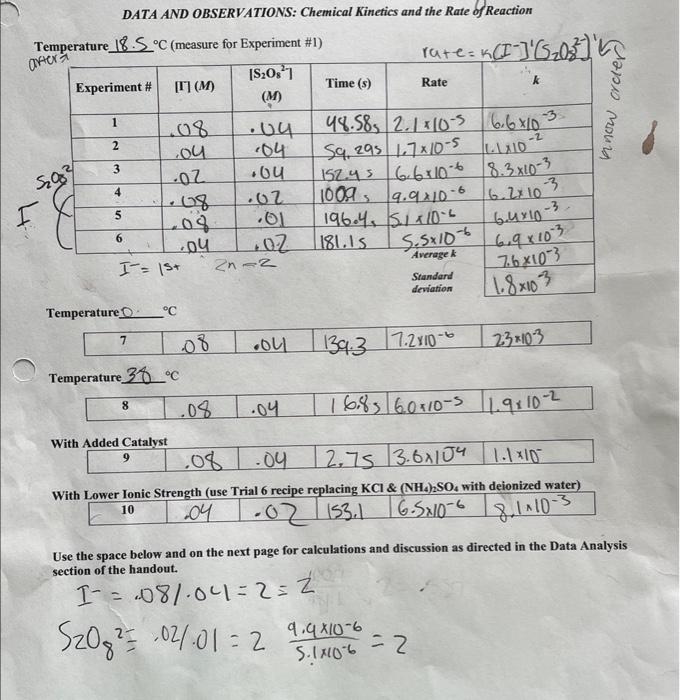 DATA AND OBSERVATIONS: Chemical Kinetics and the Rate of Reaction
Temperature 18.5 °C (measure for Experiment #1)
rate = k[I-]¹[S₂O₈²⁻]¹
know orders
Experiment # [I⁻] (M) [S₂O₈²⁻] (M) Time (s) Rate k
1 .08 .04 48.58s 2.1x10⁻⁵ 6.6x10⁻³
2 .04 .04 59.29s 1.7x10⁻⁵ 1.1x10⁻²
3 .02 .04 152.4s 6.6x10⁻⁶ 8.3x10⁻³
4 .08 .02 100.9s 9.9x10⁻⁶ 6.2x10⁻³
5 .08 .01 196.4s 5.1x10⁻⁶ 6.4x10⁻³
6 .04 .02 181.1s 5.5x10⁻⁶ 6.9x10⁻³
S₂O₈²⁻
I
I⁻= 1st
Average k 7.6x10⁻³
Standard deviation 1.8x10⁻³
Temperature 0 °C
7 .08 .04 139.3 7.2x10⁻⁶ 2.3x10⁻³
Temperature 38 °C
8 .08 .04 16.8s 6.0x10⁻⁵ 1.9x10⁻²
With Added Catalyst
9 .08 .04 2.75 3.6x10⁻⁴ 1.1x10
With Lower Ionic Strength (use Trial 6 recipe replacing KCl & (NH₄)₂SO₄ with deionized water)
10 .04 .02 153.1 6.5x10⁻⁶ 8.1x10⁻³
Use the space below and on the next page for calculations and discussion as directed in the Data Analysis
section of the handout.
I⁻ = .08/.04 = 2 = 2
S₂O₈²⁻= .02/.01 = 2 9.9x10⁻⁶/5.1x10⁻⁶ = 2